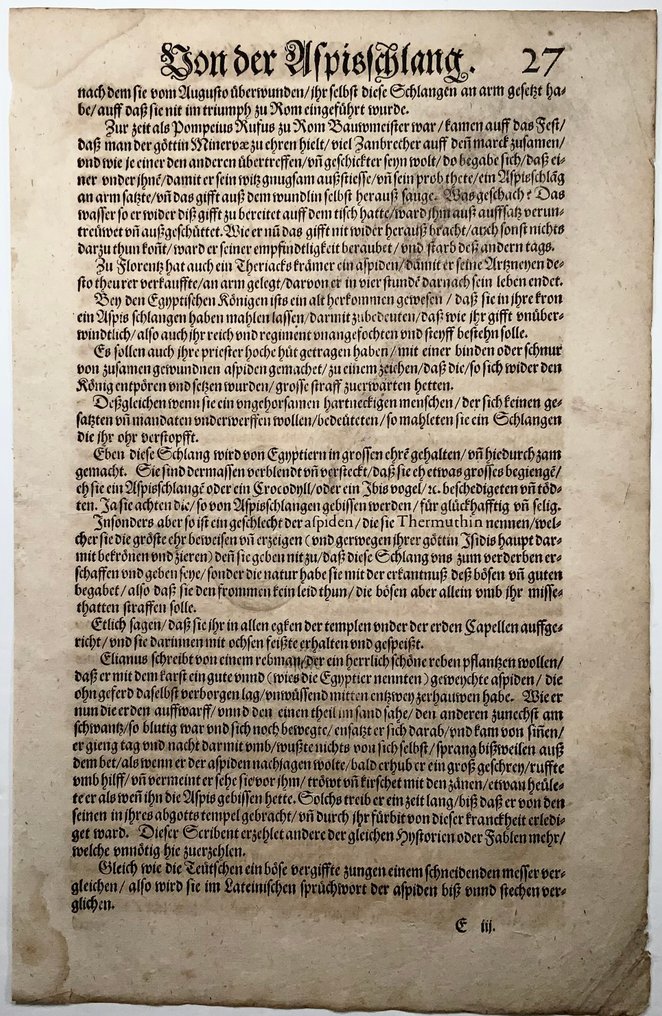 Von der Aspisschlang. 27
nach dem sie vom Augusto überwunden/ jhr selbst diese Schlangen an arm gesetzt ha-
be/ auff daß sie nit im triumph zu Rom eingeführt wurde.
Zur zeit als Pompeius Rufus zu Rom Bauwmeister war/ kamen auff das Fest/
daß man der göttin Minervæ zu ehren hielt/ viel Zanbrecher auff deñ marck zusamen/
vnd wie je einer den anderen übertreffen/ vñ geschickter seyn wolt/ do begabe sich/ daß ei-
ner vnder jhnē/ damit er sein witz gnugsam außstiesse/ vñ sein prob thete/ ein Aspisschlāg
an arm satzte/ vñ das gifft auß dem wundlin selbst herauß sauge. Was geschach? Das
wasser so er wider diß gifft zu bereitet auff dem tisch hatte/ ward jhm auß auffsatz verun-
treüwet vñ außgeschüttet. Wie er nū das gifft nit wider herauß bracht/ auch sonst nichts
darzu thun koñt/ ward er seiner empfindtligkeit beraubet/ vnd starb deß andern tags.
Zu Florentz hat auch ein Theriacks krämer ein aspiden/ damit er seine Artzneyen de-
sto theurer verkauffte/ an arm gelegt/ darvon er in vier stundē darnach sein leben endet.
Bey den Egyptischen Königen ists ein alt herkommen gewesen/ daß sie in jhre kron
ein Aspis schlangen haben mahlen lassen/ darmit zubedeuten/ daß wie jhr gifft vnüber-
windtlich/ also auch jhr reich vnd regiment vnangefochten vnd steyff bestehn solle.
Es sollen auch jhre priester hoche hüt getragen haben/ mit einer binden oder schnur
von zusamen gewundnen aspiden gemachet/ zu einem zeichen/ daß die/ so sich wider den
König entpören vnd setzen wurden/ grosse straff zuerwarten hetten.
Deßgleichen wenn sie ein vngehorsamen hartneckigen menschen/ der sich keinen ge-
satzten vñ mandaten vnderwerffen wollen/ bedeüteten/ so mahleten sie ein Schlangen
die jhr ohr verstopfft.
Eben diese Schlang wird von Egyptiern in grossen ehrē gehalten/ vñ hiedurch zam
gemacht. Sie sind dermassen verblendt vñ versteckt/ daß sie eh etwas grosses begiengē/
eh sie ein Aspisschlangē oder ein Crocodyll/ oder ein Ibis vogel/ ꝛc. beschedigeten vñ töd-
ten. Ja sie achten die/ so von Aspisschlangen gebissen werden/ für glückhafftig vñ selig.
Insonders aber so ist ein geschlecht der aspiden/ die sie Thermuthin nennen/ wel-
cher sie die gröste ehr beweisen vñ erzeigen (vnd gerwegen jhrer göttin Isidis haupt dar-
mit bekrönen vnd zieren) deñ sie geben nit zu/ daß diese Schlang vns zum verderben er-
schaffen vnd geben seye/ sonder die natur habe sie mit der erkantnuß deß bösen vñ guten
begabet/ also daß sie den frommen kein leid thun/ die bösen aber allein vmb jhr misse-
thatten straffen solle.
Etlich sagen/ daß sie jhr in allen egken der templen vnder der erden Capellen auffge-
richt/ vnd sie darinnen mit ochsen feißte erhalten vnd gespeißt.
Elianus schreibt von einem rebman/ der ein herrlich schöne reben pflantzen wollen/
daß er mit dem karst ein gute vnnd (wies die Egyptier nennten) geweychte aspiden/ die
ohn geferd daselbst verborgen lag/ vnwüssend mitten entzwey zerhauwen habe. Wie er
nun die erden auffwarff/ vnnd den einen theil im sand sahe/ den anderen zunechst am
schwantz/ so blutig war vnd sich noch bewegte/ ensatzt er sich darab/ vnd kam von siñen/
er gieng tag vnd nacht darmit vmb/ wußte nichts von sich selbst/ sprang bißweilen auß
dem bet/ als wenn er der aspiden nachjagen wolte/ bald erhub er ein groß geschrey/ ruffte
vmb hilff/ vñ vermeint er sehe sie vor jhm/ tröwt vñ kirschet mit den zänen/ etwan heüle-
te er als weñ jhn die Aspis gebissen hette. Solchs treib er ein zeit lang/ biß daß er von den
seinen in jhres abgotts tempel gebracht/ vñ durch jhr fürbit von dieser kranckheit erledi-
get ward. Dieser Scribent erzehlet andere der gleichen Hystorien oder Fablen mehr/
welche vnnötig hie zuerzehlen.
Gleich wie die Teütschen ein böse vergiffte zungen einem schneidenden messer ver-
gleichen/ also wird sie im Lateinischen sprüchwort der aspiden biß vnnd stechen ver-
glichen.
E iij.